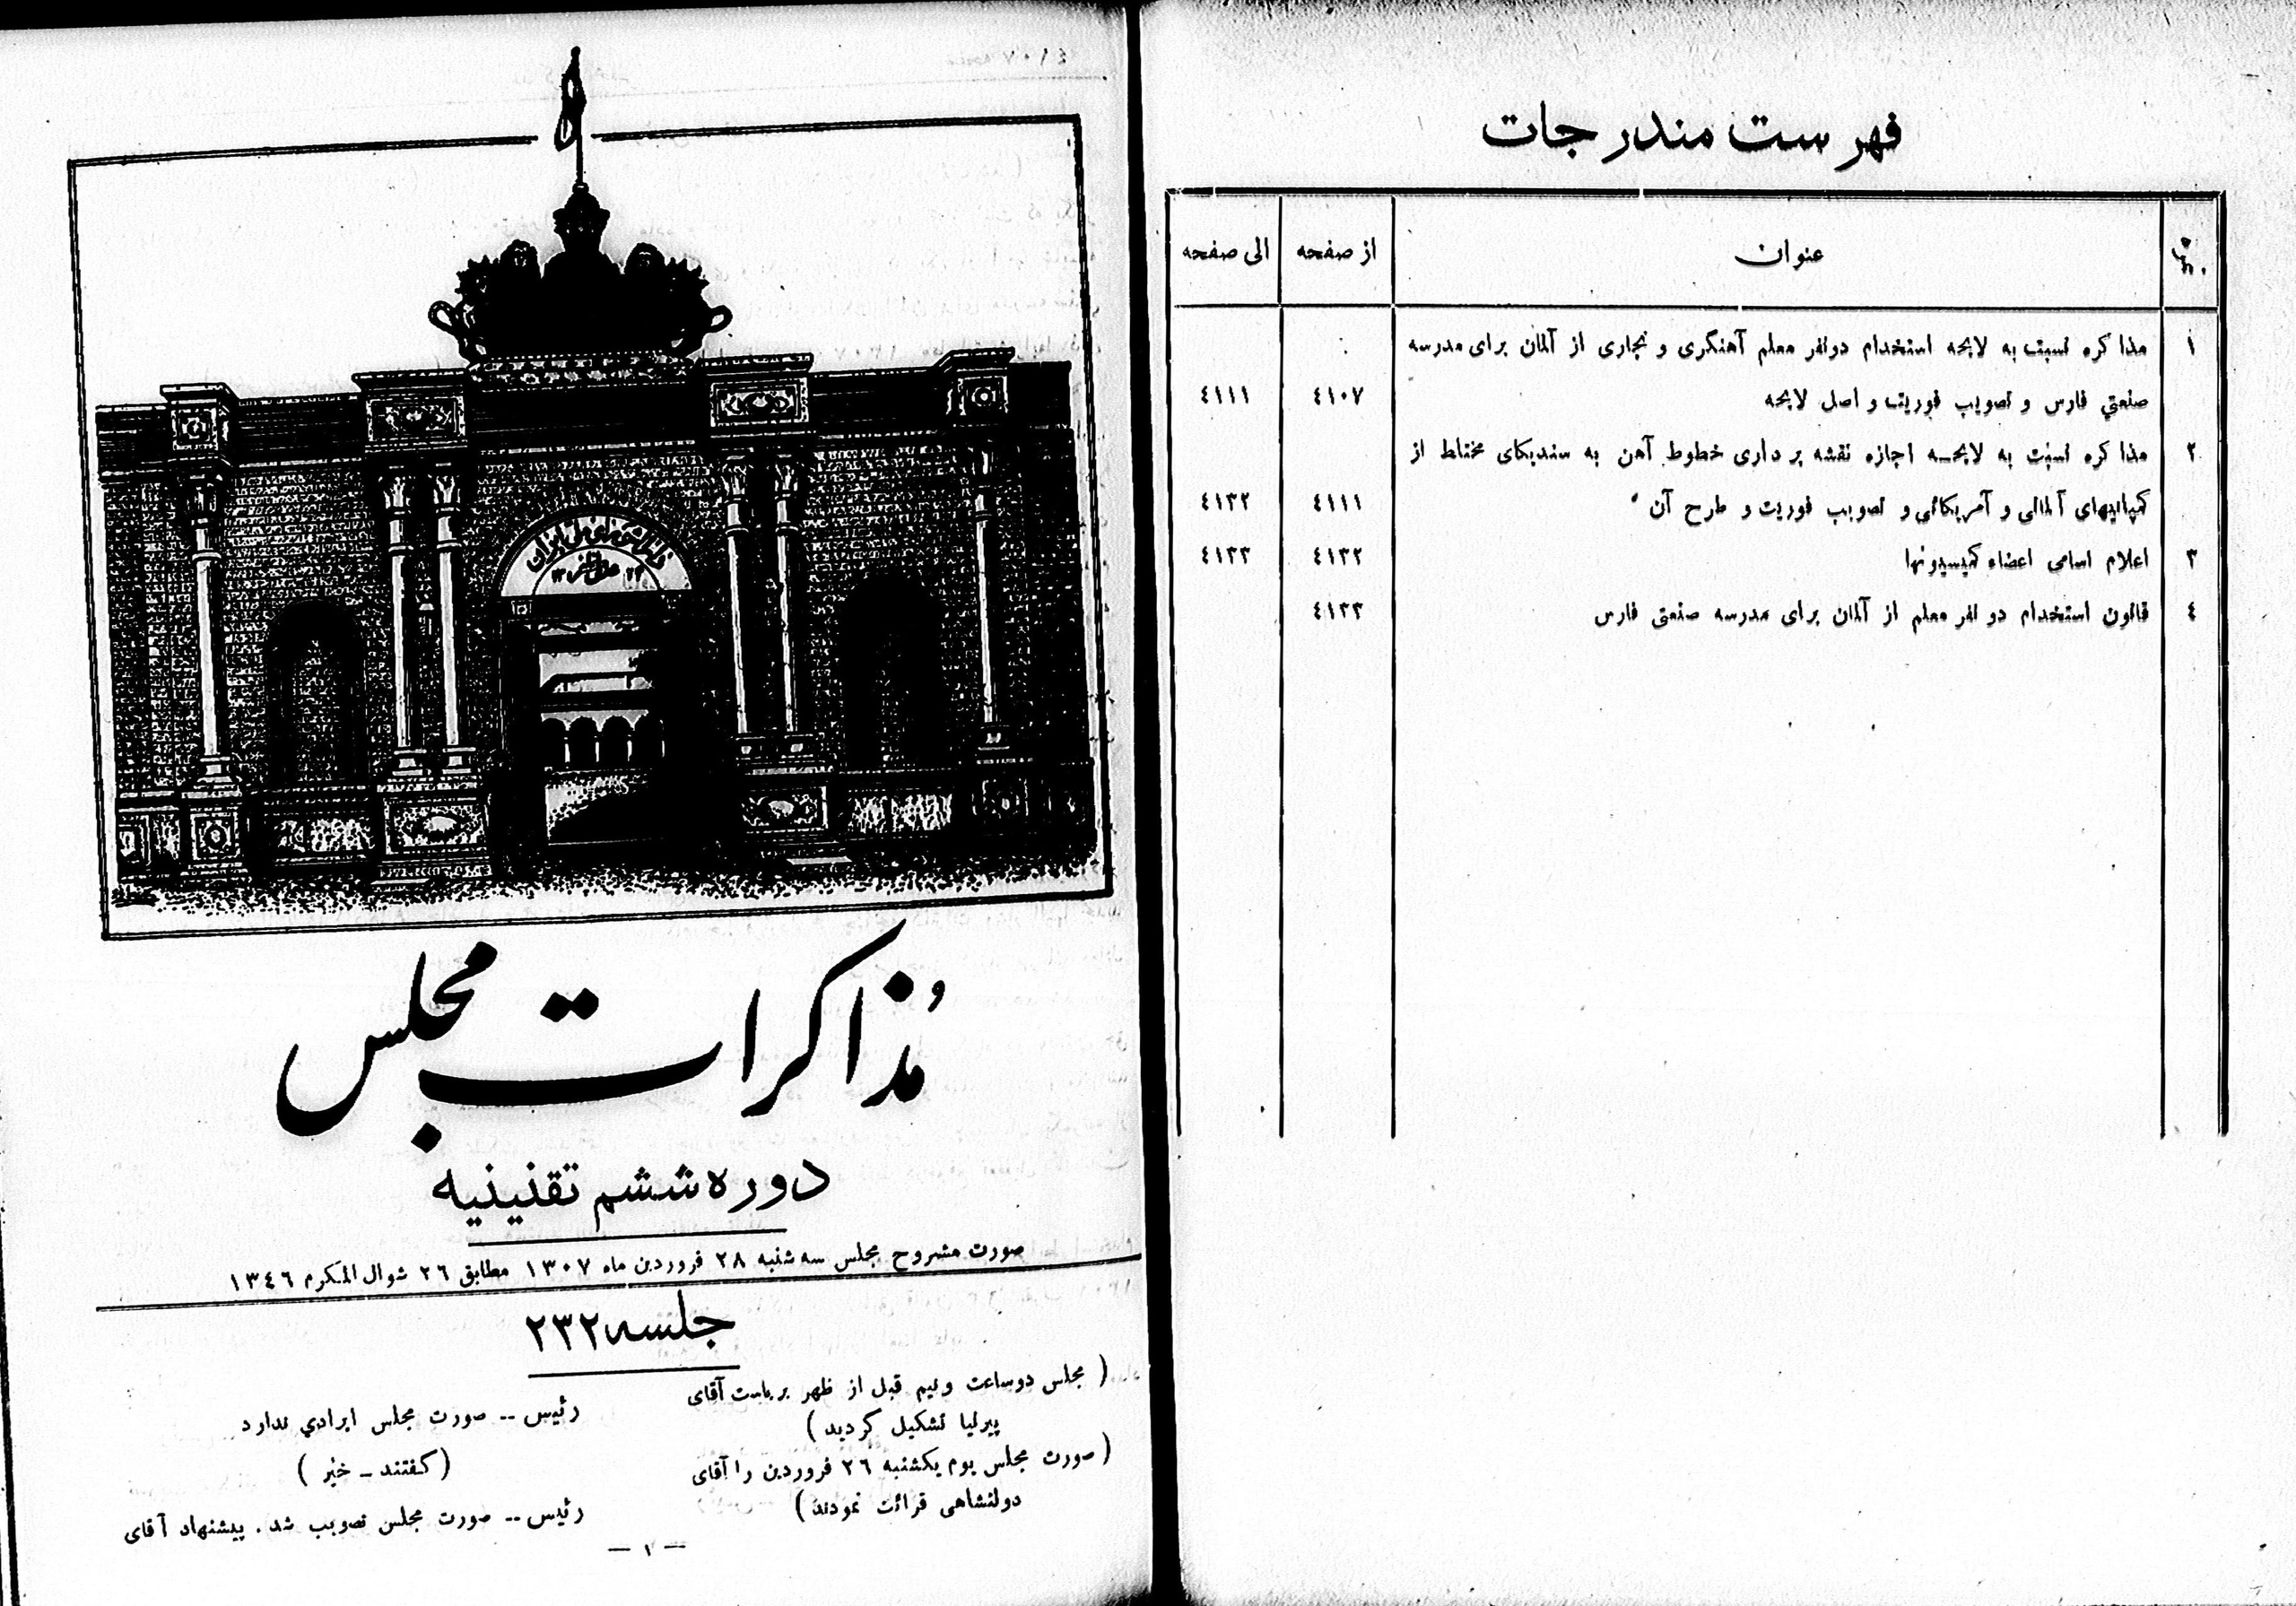 فهرست مندرجات
نمره عنوان از صفحه الی صفحه
۱ مذاکره نسبت به لایحه استخدام دونفر معلم آهنگری و نجاری از آلمان برای مدرسه
صنعتي فارس و تصویب فوریت و اصل لایحه ٤۱۰۷ ٤۱۱۱
۲ مذاکره نسبت به لایحه اجازه نقشه برداری خطوط آهن به سندیکای مختلط از
کمپانیهای آلمانی و آمریکائی و تصویب فوریت و طرح آن ٤۱۱۱ ٤۱۳۲
۳ اعلام اسامی اعضاء کمیسیونها ٤۱۳۲ ٤۱۳۳
٤ قانون استخدام دو نفر معلم از آلمان برای مدرسه صنعتی فارس ٤۱۳۳
مُذاکرات مجلس
دوره ششم تقنینیه
صورت مشروح مجلس سه شنبه ۲۸ فروردین ماه ۱۳۰۷ مطابق ۲٦ شوال المکرم ۱۳٤٦
جلسه ۲۳۲
( مجلس دوساعت ونیم قبل از ظهر بریاست آقای
پیرنیا تشکیل گردید )
( صورت مجلس یوم یکشنبه ۲٦ فروردین را آقای
دولتشاهی قرائت نمودند )
رئیس -- صورت مجلس ایرادي ندارد
( گفتند - خیر )
رئیس -- صورت مجلس تصویب شد . پیشنهاد آقای
— ۱ —